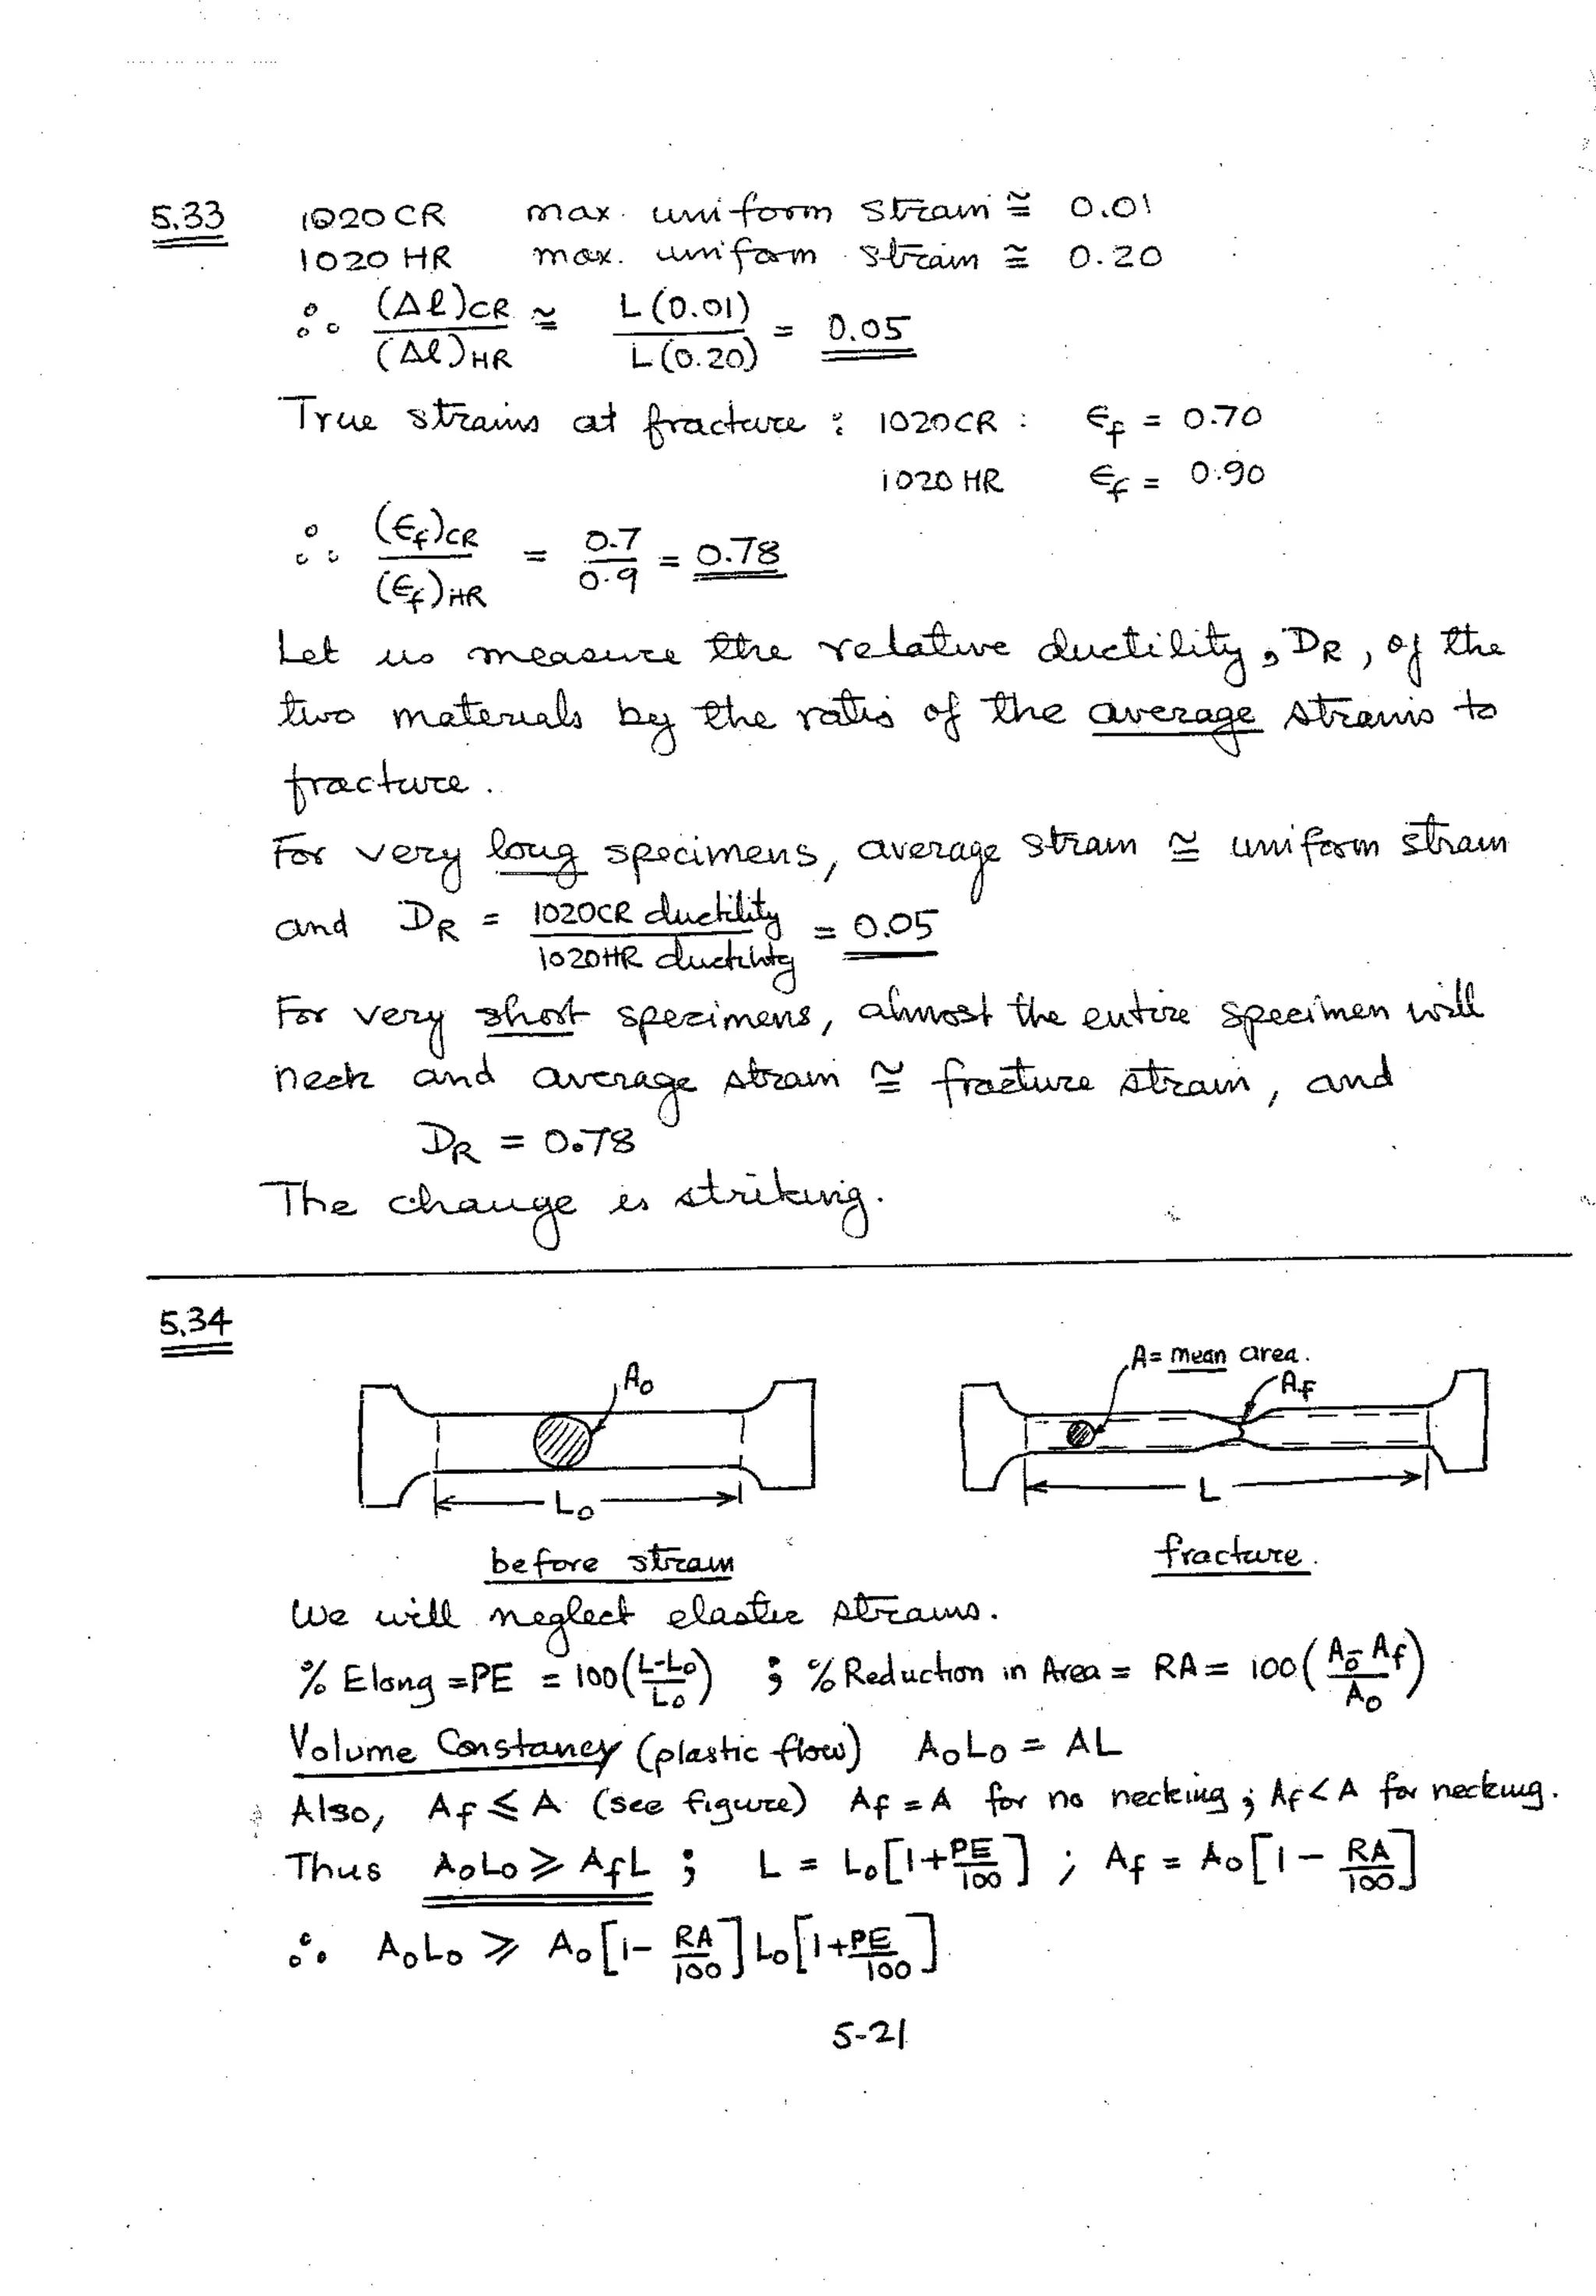 5.33 1020 CR max. uniform strain ≅ 0.01
1020 HR max. uniform strain ≅ 0.20
∴ (Δℓ)CR / (Δℓ)HR ≅ L(0.01) / L(0.20) = 0.05
True strains at fracture : 1020CR : ϵf = 0.70
1020 HR ϵf = 0.90
∴ (ϵf)CR / (ϵf)HR = 0.7 / 0.9 = 0.78
Let us measure the relative ductility, DR, of the
two materials by the ratio of the average strains to
fracture.
For very long specimens, average strain ≅ uniform strain
and DR = 1020CR ductility / 1020HR ductility = 0.05
For very short specimens, almost the entire specimen will
neck and average strain ≅ fracture strain, and
DR = 0.78
The change is striking.
5.34
A = mean area.
A0
Af
L0
L
before strain
fracture.
We will neglect elastic strains.
% Elong = PE = 100((L-L0)/L0) ; % Reduction in Area = RA = 100((A0-Af)/A0)
Volume Constancy (plastic flow) A0L0 = AL
Also, Af ≤ A (see figure) Af = A for no necking ; Af < A for necking.
Thus A0L0 ⩾ AfL ; L = L0[1+PE/100] ; Af = A0[1 - RA/100]
∴ A0L0 ⩾ A0[1- RA/100] L0[1+PE/100]
5-21